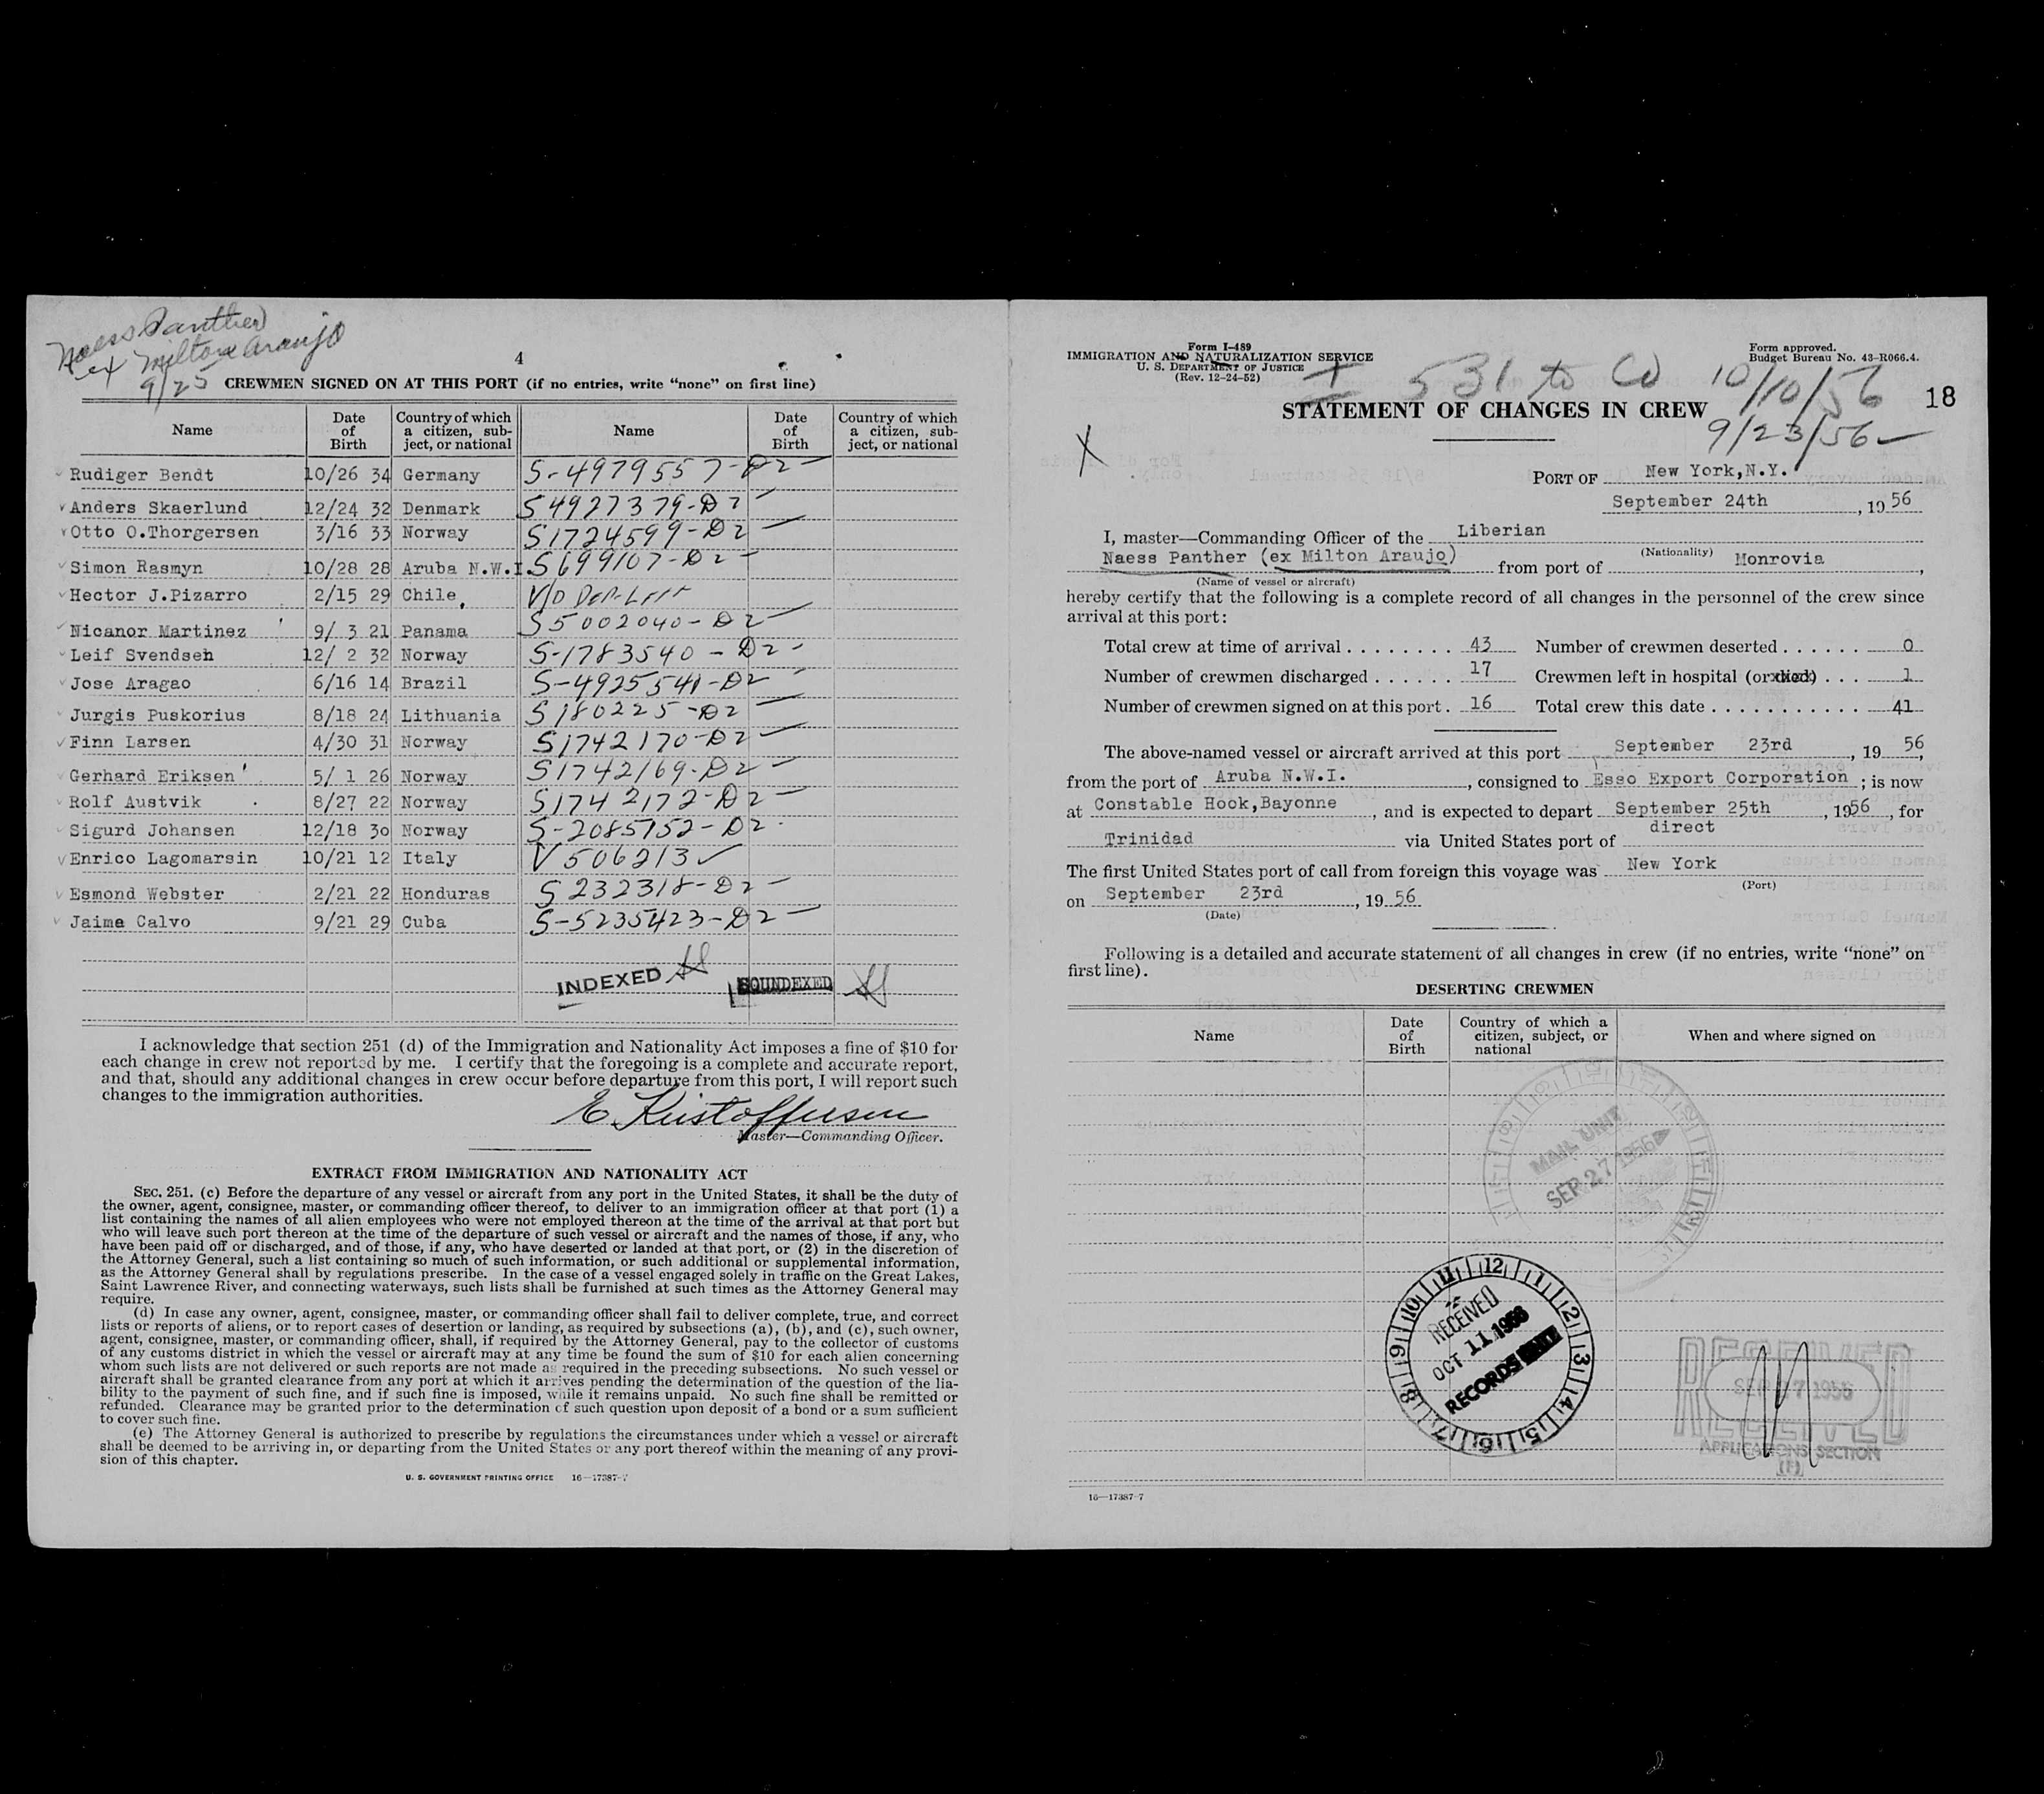 Naess Panther
ex Milton Araujo
9/25
4
CREWMEN SIGNED ON AT THIS PORT (if no entries, write “none” on first line)
Name | Date of Birth | Country of which a citizen, subject, or national | Name | Date of Birth | Country of which a citizen, subject, or national
Rudiger Bendt 10/26 34 Germany S-4979557-D2 –
Anders Skaerlund 12/24 32 Denmark S4927379-D2 –
Otto O.Thorgersen 3/16 33 Norway S1724599-D2 –
Simon Rasmyn 10/28 28 Aruba N.W.I. S699107-D2 –
Hector J.Pizarro 2/15 29 Chile, V/O
Nicanor Martinez 9/ 3 21 Panama S5002040-D2 –
Leif Svendsen 12/ 2 32 Norway S-1783540-D2 -
Jose Aragao 6/16 14 Brazil S-4925541-D2 –
Jurgis Puskorius 8/18 24 Lithuania S180225-D2 –
Finn Larsen 4/30 31 Norway S1742170-D2 –
Gerhard Eriksen 5/ 1 26 Norway S1742169-D2 –
Rolf Austvik 8/27 22 Norway S1742172-D2 –
Sigurd Johansen 12/18 30 Norway S-2085152-D2 -
Enrico Lagomarsin 10/21 12 Italy V506213 ✓
Esmond Webster 2/21 22 Honduras S232318-D2 –
Jaime Calvo 9/21 29 Cuba S-5235423-D2 –
INDEXED SOUNDEXED
I acknowledge that section 251 (d) of the Immigration and Nationality Act imposes a fine of $10 for
each change in crew not reported by me. I certify that the foregoing is a complete and accurate report,
and that, should any additional changes in crew occur before departure from this port, I will report such
changes to the immigration authorities.
E. Kristoffersen
Master—Commanding Officer.
EXTRACT FROM IMMIGRATION AND NATIONALITY ACT
SEC. 251. (c) Before the departure of any vessel or aircraft from any port in the United States, it shall be the duty of
the owner, agent, consignee, master, or commanding officer thereof, to deliver to an immigration officer at that port (1) a
list containing the names of all alien employees who were not employed thereon at the time of the arrival at that port but
who will leave such port thereon at the time of the departure of such vessel or aircraft and the names of those, if any, who
have been paid off or discharged, and of those, if any, who have deserted or landed at that port, or (2) in the discretion of
the Attorney General, such a list containing so much of such information, or such additional or supplemental information,
as the Attorney General shall by regulations prescribe. In the case of a vessel engaged solely in traffic on the Great Lakes,
Saint Lawrence River, and connecting waterways, such lists shall be furnished at such times as the Attorney General may
require.
(d) In case any owner, agent, consignee, master, or commanding officer shall fail to deliver complete, true, and correct
lists or reports of aliens, or to report cases of desertion or landing, as required by subsections (a), (b), and (c), such owner,
agent, consignee, master, or commanding officer, shall, if required by the Attorney General, pay to the collector of customs
of any customs district in which the vessel or aircraft may at any time be found the sum of $10 for each alien concerning
whom such lists are not delivered or such reports are not made as required in the preceding subsections. No such vessel or
aircraft shall be granted clearance from any port at which it arrives pending the determination of the question of the lia-
bility to the payment of such fine, and if such fine is imposed, while it remains unpaid. No such fine shall be remitted or
refunded. Clearance may be granted prior to the determination of such question upon deposit of a bond or a sum sufficient
to cover such fine.
(e) The Attorney General is authorized to prescribe by regulations the circumstances under which a vessel or aircraft
shall be deemed to be arriving in, or departing from the United States or any port thereof within the meaning of any provi-
sion of this chapter.
U. S. GOVERNMENT PRINTING OFFICE 16—17387-7
Form I-489
IMMIGRATION AND NATURALIZATION SERVICE
U. S. DEPARTMENT OF JUSTICE
(Rev. 12-24-52)
Form approved.
Budget Bureau No. 43-R066.4.
531 to CO 10/10/56
18
STATEMENT OF CHANGES IN CREW
9/23/56
X
PORT OF New York,N.Y.
September 24th, 1956
I, master—Commanding Officer of the Liberian
(Nationality)
Naess Panther (ex Milton Araujo) from port of Monrovia,
(Name of vessel or aircraft)
hereby certify that the following is a complete record of all changes in the personnel of the crew since
arrival at this port:
Total crew at time of arrival . . . . . . . . 43 Number of crewmen deserted . . . . . . 0
Number of crewmen discharged . . . . . . 17 Crewmen left in hospital (or died) . . . 1
Number of crewmen signed on at this port . 16 Total crew this date . . . . . . . . . . . 41
The above-named vessel or aircraft arrived at this port September 23rd, 1956,
from the port of Aruba N.W.I., consigned to Esso Export Corporation; is now
at Constable Hook,Bayonne, and is expected to depart September 25th, 1956, for
Trinidad via United States port of direct
The first United States port of call from foreign this voyage was New York
(Port)
on September 23rd, 1956
(Date)
Following is a detailed and accurate statement of all changes in crew (if no entries, write “none” on
first line).
DESERTING CREWMEN
Name | Date of Birth | Country of which a citizen, subject, or national | When and where signed on
MAIL UNIT
SEP 27 1956
RECEIVED
OCT 11 1956
RECORDS
RECEIVED
SEP 27 1956
APPLICATIONS SECTION
16—17387-7